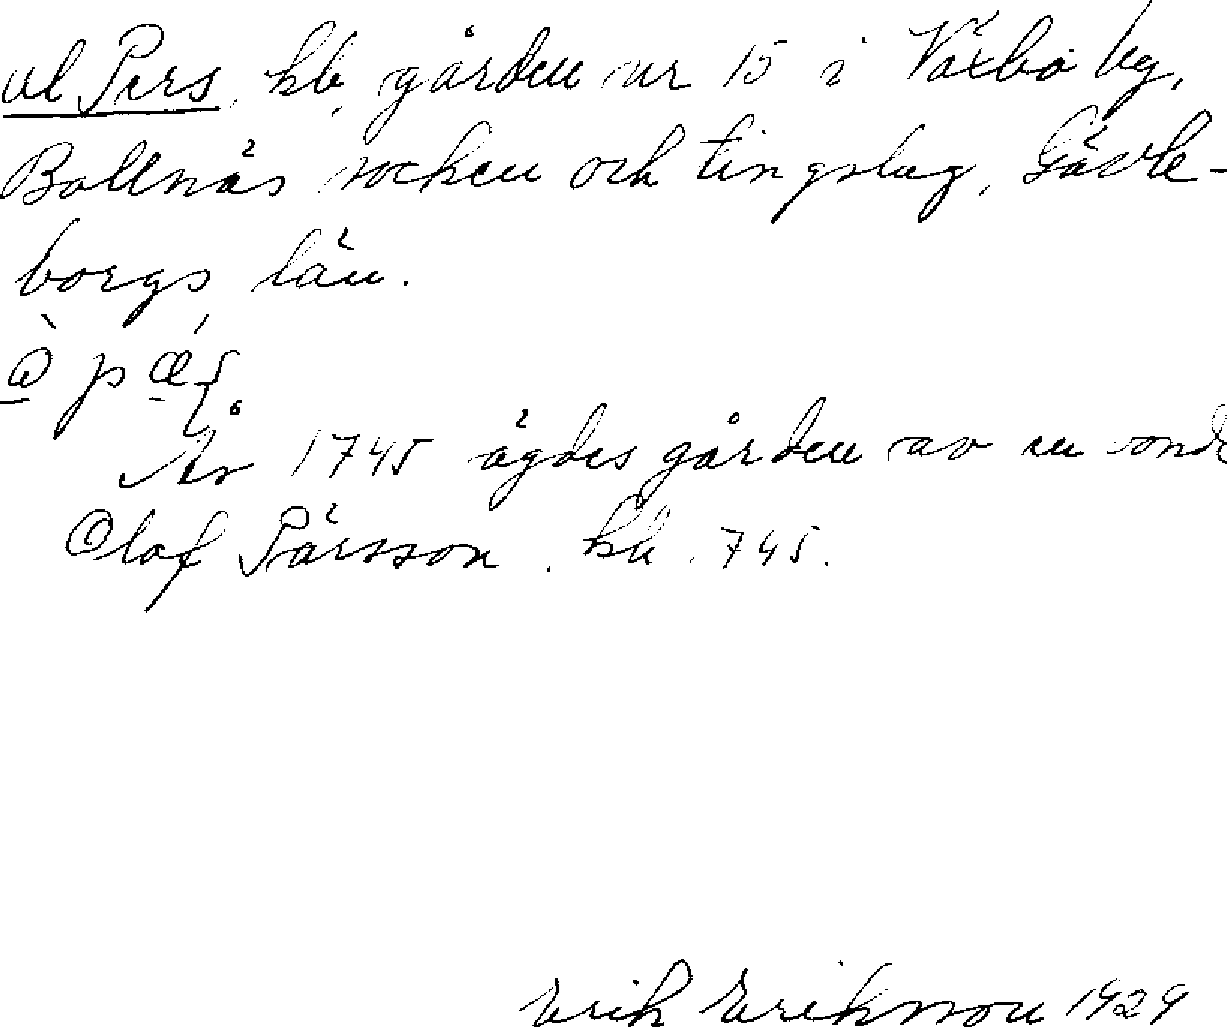 ol Pers, hb, gården nr 15 i Växbo by,
Bollnäs socken och tingslag, Gävle-
borgs län.
År 1745 ägdes gården av en bonde
Olof Pärsson. hb. 745.
Erik Eriksson 1929